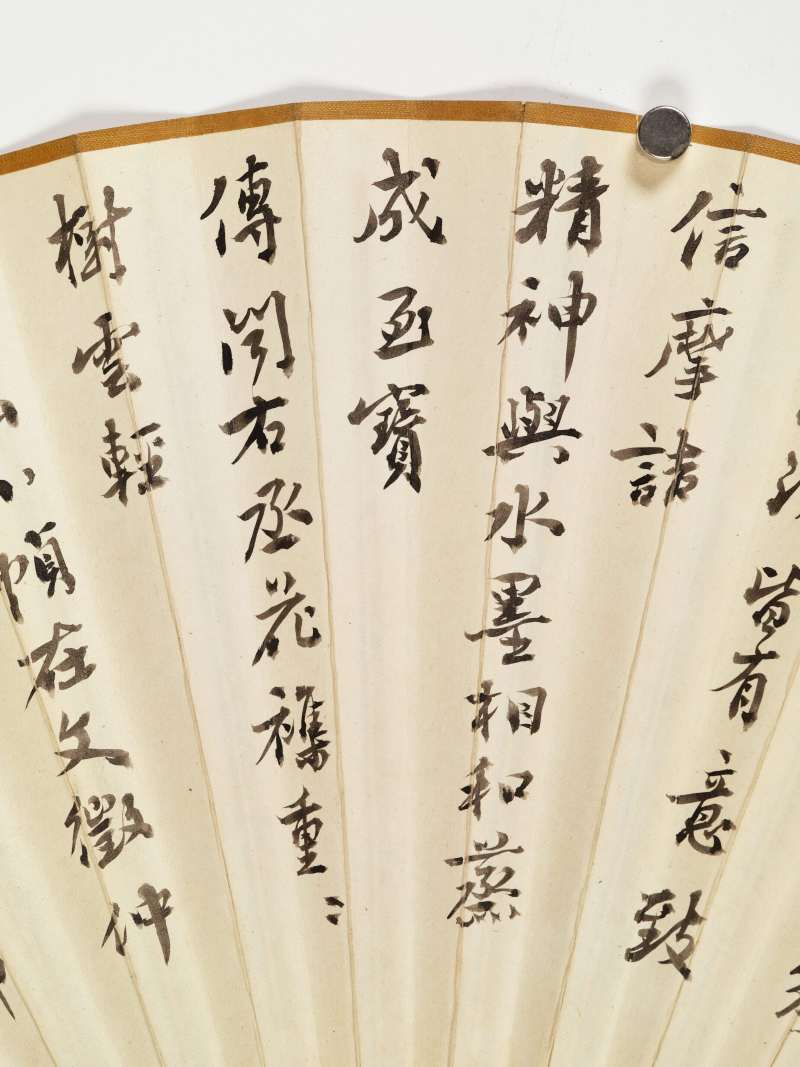 皆有意致
信摩詰
精神與水墨相和蒸
成寶
傳聞右丞花襍重〻
樹雲輕
小幀在文徵仲